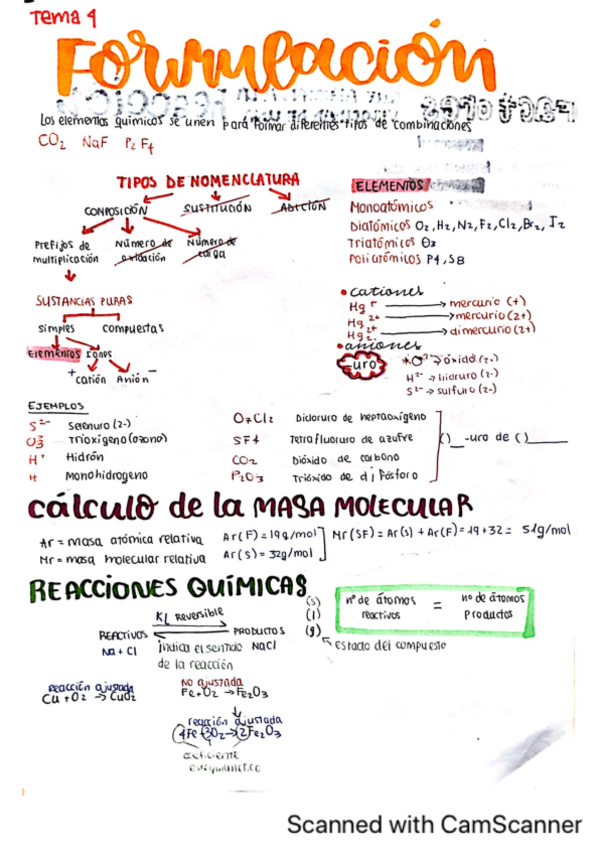 Tema 4
Formulación
Los elementos químicos se unen para formar diferentes tipos de combinaciones
CO₂ NaF P₂F₄
TIPOS DE NOMENCLATURA
COMPOSICIÓN SUSTITUCIÓN ADICIÓN
Prefijos de multiplicación
Número de oxidación
Número de carga
SUSTANCIAS PURAS
simples compuestas
Elementos iones
+ catión Anión -
ELEMENTOS
Monoatómicos
Diatómicos O₂, H₂, N₂, F₂, Cl₂, Br₂, I₂
Triatómicos O₃
Poliatómicos P₄, S₈
• cationes
Hg⁺ → mercurio (+)
Hg²⁺ → mercurio (2+)
Hg₂²⁺ → dimercurio (2+)
• aniones
-uro
*O²⁻ → óxido (2-)
H²⁻ → hidruro (2-)
S²⁻ → sulfuro (2-)
EJEMPLOS
S²⁻ selenuro (2-)
O₃ Trioxígeno (ozono)
H⁺ Hidrón
H Monohidrogeno
O₇Cl₂ Dicloruro de heptaoxígeno
SF₄ Tetrafluoruro de azufre
CO₂ Dióxido de carbono
P₂O₃ Trióxido de difósforo
( )_-uro de ( )____
cálculo de la MASA MOLECULAR
Ar = masa atómica relativa
Mr = masa molecular relativa
Ar(F) = 19g/mol
Ar(S) = 32g/mol
Mr(SF) = Ar(S) + Ar(F) = 19+32 = 51g/mol
REACCIONES QUÍMICAS
Reversible
REACTIVOS PRODUCTOS
Na + Cl indica el sentido NaCl
de la reacción
(s)
(l)
(g)
estado del compuesto
nº de átomos reactivos = nº de átomos productos
reacción ajusada
Cu + O₂ → CuO₂
No ajustada
Fe+O₂ → Fe₂O₃
reacción ajustada
4Fe+3O₂→2Fe₂O₃
Scanned with CamScanner